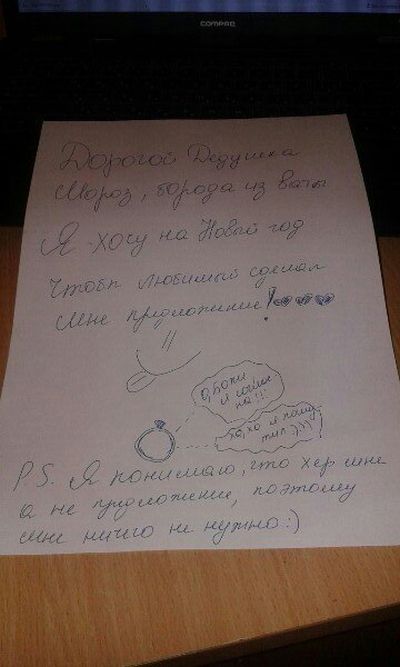 COMPAQ
Дорогой Дедушка
Мороз, борода из ваты
Я хочу на Новый год
Чтобы любимый сделал
Мне предложение!
О, Боже
я соглас
на!!!
Ха, хо я пошу
тил :)))
P.S. Я понимаю, что хер мне
а не предложение, поэтому
мне ничего не нужно :)